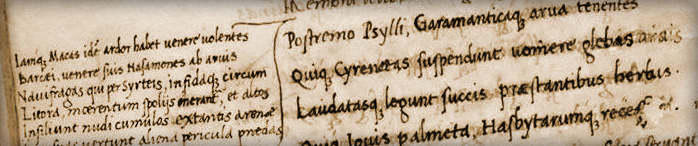 Iamq, Macas idē ardor habet venere volentes
Barcæi, venere suis Nasamones ab aruis
Naufragas qui per Syrteis, infidaq, circum
Litora, mœrentum spoliis onerant, et altos
Insiliunt nudi cumulos extantis arenæ
vertunt aliena pericula prædas
Postremo Psylli, Garamanticaq, arua tenentes
Quiq, Cyreneas suspendunt vomere glebas
Laudatasq, legunt succis præstantibus herbas.
Iouis palmeta, Hasbytarumq,